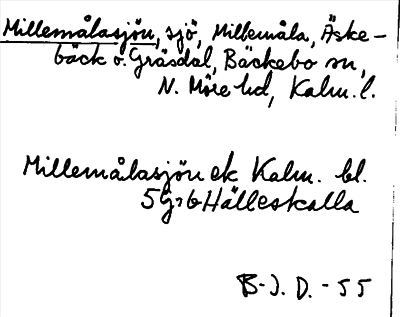 Millemålasjön, sjö, Millemåla, Äske-
bäck o. Gräsdal, Bäckebo sn,
N. Möre hd, Kalm. l.
Millemålasjön ek Kalm. bl.
5 G 7 b Hälleskalla
B-J. D. - 55